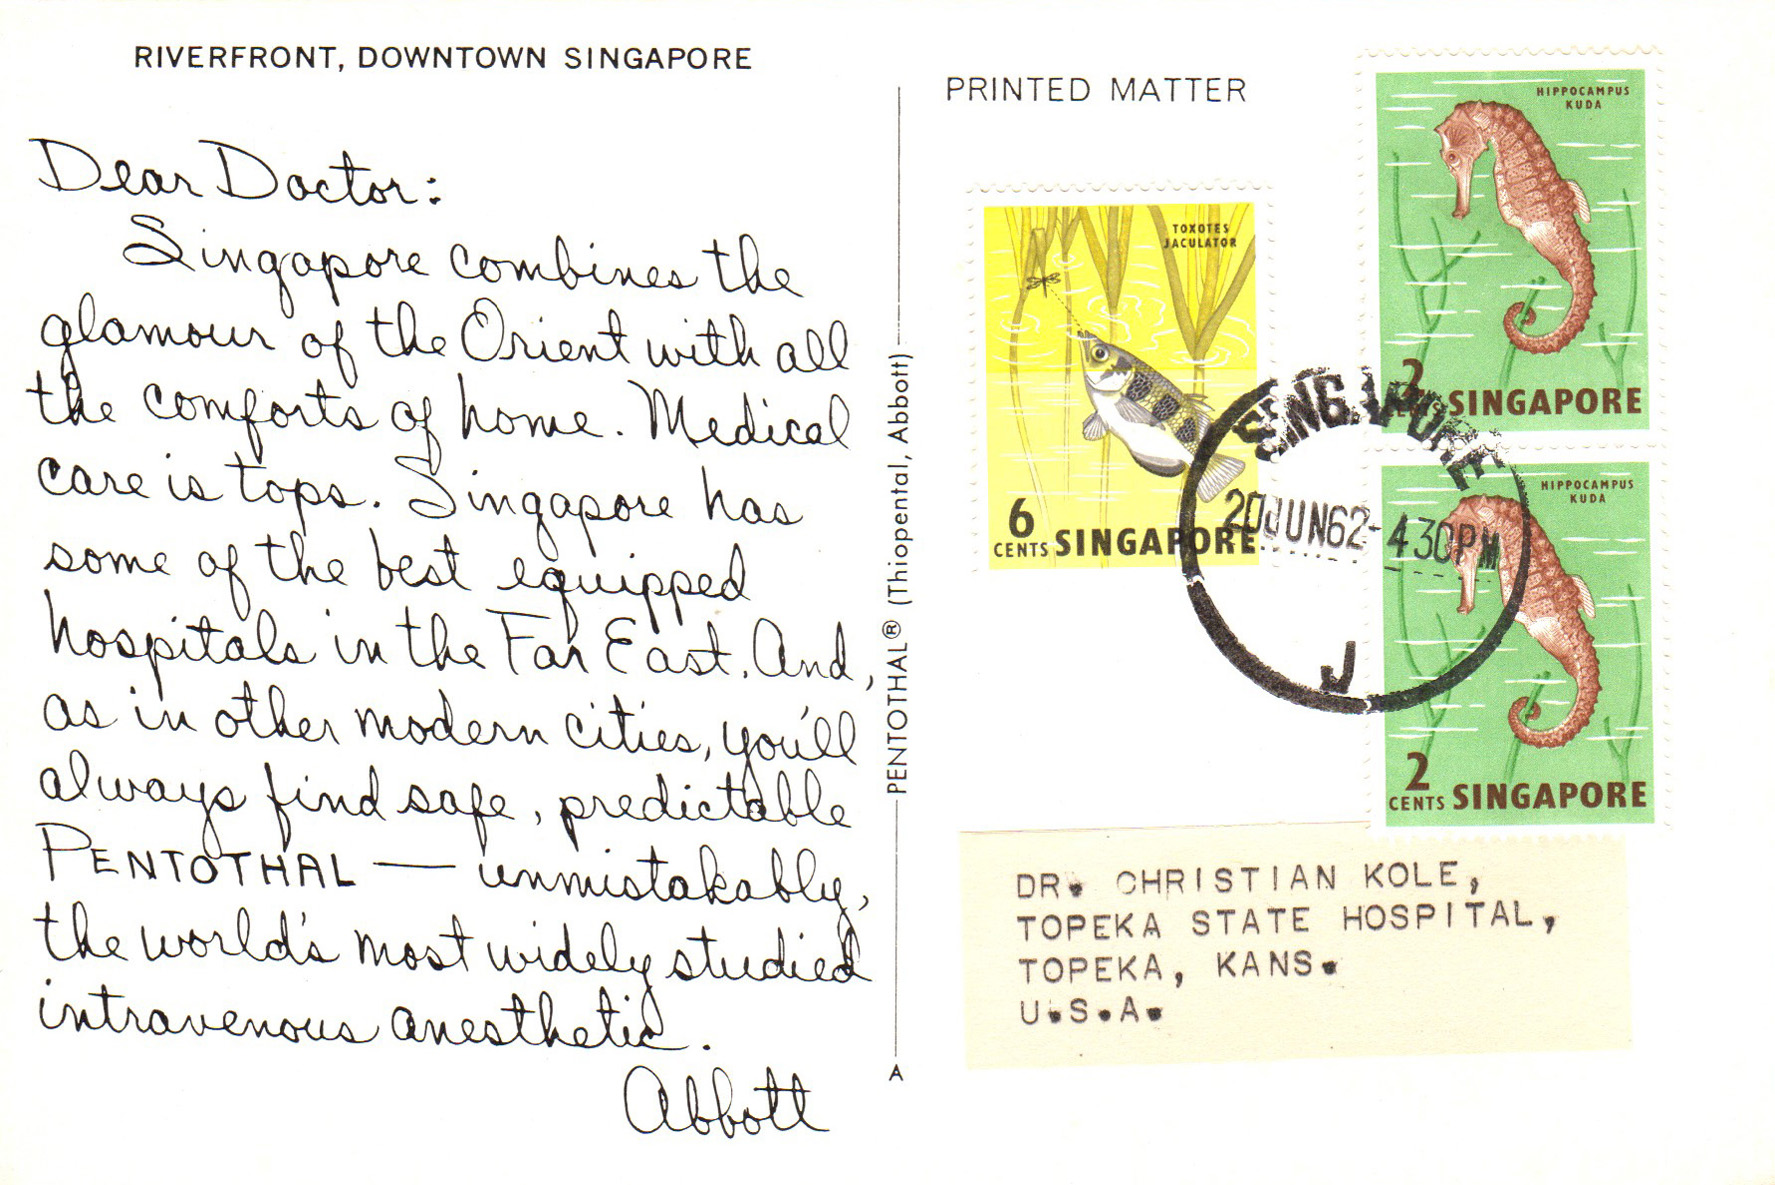 RIVERFRONT, DOWNTOWN SINGAPORE
Dear Doctor:
Singapore combines the
glamour of the Orient with all
the comforts of home. Medical
care is tops. Singapore has
some of the best equipped
hospitals in the Far East. And,
as in other modern cities, you'll
always find safe, predictable
PENTOTHAL — unmistakably,
the world's most widely studied
intravenous anesthetic.
Abbott
PENTOTHAL® (Thiopental, Abbott)
A
PRINTED MATTER
TOXOTES
JACULATOR
6
CENTS SINGAPORE
HIPPOCAMPUS
KUDA
2
CENTS SINGAPORE
HIPPOCAMPUS
KUDA
2
CENTS SINGAPORE
SINGAPORE
20JUN62-430PM
J
DR. CHRISTIAN KOLE,
TOPEKA STATE HOSPITAL,
TOPEKA, KANS.
U.S.A.